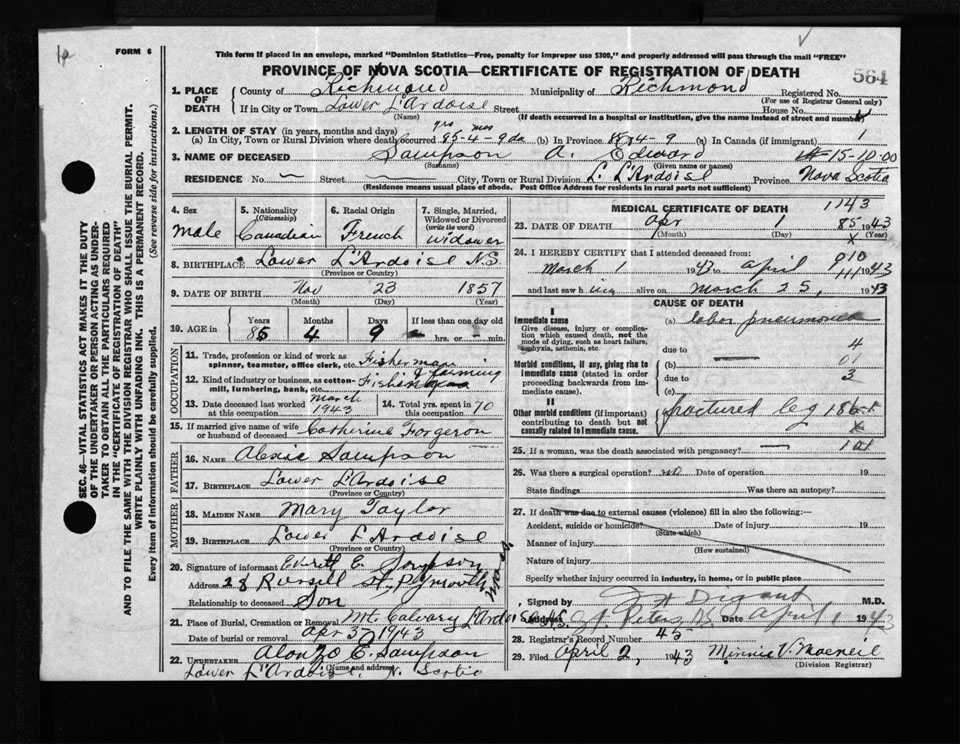 FORM 6
This form if placed in an envelope, marked "Dominion Statistics—Free, penalty for improper use $300," and properly addressed will pass through the mail "FREE"
PROVINCE OF NOVA SCOTIA—CERTIFICATE OF REGISTRATION OF DEATH
564
SEC. 46—VITAL STATISTICS ACT MAKES IT THE DUTY
OF THE UNDERTAKER OR PERSON ACTING AS UNDER-
TAKER TO OBTAIN ALL THE PARTICULARS REQUIRED
IN THE "CERTIFICATE OF REGISTRATION OF DEATH"
AND TO FILE THE SAME WITH THE DIVISION REGISTRAR WHO SHALL ISSUE THE BURIAL PERMIT.
WRITE PLAINLY WITH UNFADING INK. THIS IS A PERMANENT RECORD.
Every item of information should be carefully supplied. (See reverse side for instructions.)
1. PLACE OF DEATH County of Richmond Municipality of Richmond Registered No.
(For use of Registrar General only)
If in City or Town Lower L'Ardoise Street House No.
(Name) (If death occurred in a hospital or institution, give the name instead of street and number)
2. LENGTH OF STAY (in years, months and days) yrs mos
(a) In City, Town or Rural Division where death occurred 85-4-9 da (b) In Province 85-4-9 (c) In Canada (if immigrant) 1
3. NAME OF DECEASED Sampson A. Edward 15-10-00
(Surname) (Given name or names)
RESIDENCE No. — Street City, Town or Rural Division L. L'Ardoise Province Nova Scotia
(Residence means usual place of abode. Post Office Address for residents in rural parts not sufficient)
4. Sex Male
5. Nationality (Citizenship) Canadian
6. Racial Origin French
7. Single, Married, Widowed or Divorced (write the word) widower
8. BIRTHPLACE Lower L'Ardoise N.S.
(Province or Country)
9. DATE OF BIRTH Nov 23 1857
(Month) (Day) (Year)
10. AGE in Years Months Days If less than one day old
85 4 9 hrs. or min.
OCCUPATION
11. Trade, profession or kind of work as spinner, teamster, office clerk, etc. Fisherman
12. Kind of industry or business, as cotton-mill, lumbering, bank, etc. Fishing & farming
13. Date deceased last worked at this occupation March 1943
14. Total yrs. spent in this occupation 70
15. If married give name of wife or husband of deceased Catherine Forgeron
FATHER
16. NAME Alexis Sampson
17. BIRTHPLACE Lower L'Ardoise
(Province or Country)
MOTHER
18. MAIDEN NAME Mary Taylor
19. BIRTHPLACE Lower L'Ardoise
(Province or Country)
20. Signature of informant Everett E. Sampson
Address 28 Russell St. Plymouth Mass.
Relationship to deceased Son
21. Place of Burial, Cremation or Removal Mt. Calvary L'Ardoise N.S.
Date of burial or removal Apr 3 1943
22. UNDERTAKER Alonzo E. Sampson
(Name and address)
Lower L'Ardoise, N. Scotia
MEDICAL CERTIFICATE OF DEATH 1143
23. DATE OF DEATH Apr 1 85 1943
(Month) (Day) (Year)
24. I HEREBY CERTIFY that I attended deceased from: 910
March 1 1943 to April 1943
and last saw him alive on March 25, 1943
CAUSE OF DEATH
I
Immediate cause
Give disease, injury or complication which caused death, not the mode of dying, such as heart failure, asphyxia, asthenia, etc.
(a) lobar pneumonia
due to 4
Morbid conditions, if any, giving rise to immediate cause (stated in order proceeding backwards from immediate cause)
(b) 01
due to 3
(c)
II
Other morbid conditions (if important) contributing to death but not causally related to immediate cause.
fractured leg 186
25. If a woman, was the death associated with pregnancy? —
26. Was there a surgical operation? no Date of operation 19
State findings Was there an autopsy?
27. If death was due to external causes (violence) fill in also the following:—
Accident, suicide or homicide? Date of injury 19
(State which)
Manner of injury
(How sustained)
Nature of injury
Specify whether injury occurred in industry, in home, or in public place
Signed by M.D.
Address St. Peters Date April 1 1943
28. Registrar's Record Number 45
29. Filed April 2, 1943 Minnie V. Macneil
(Division Registrar)